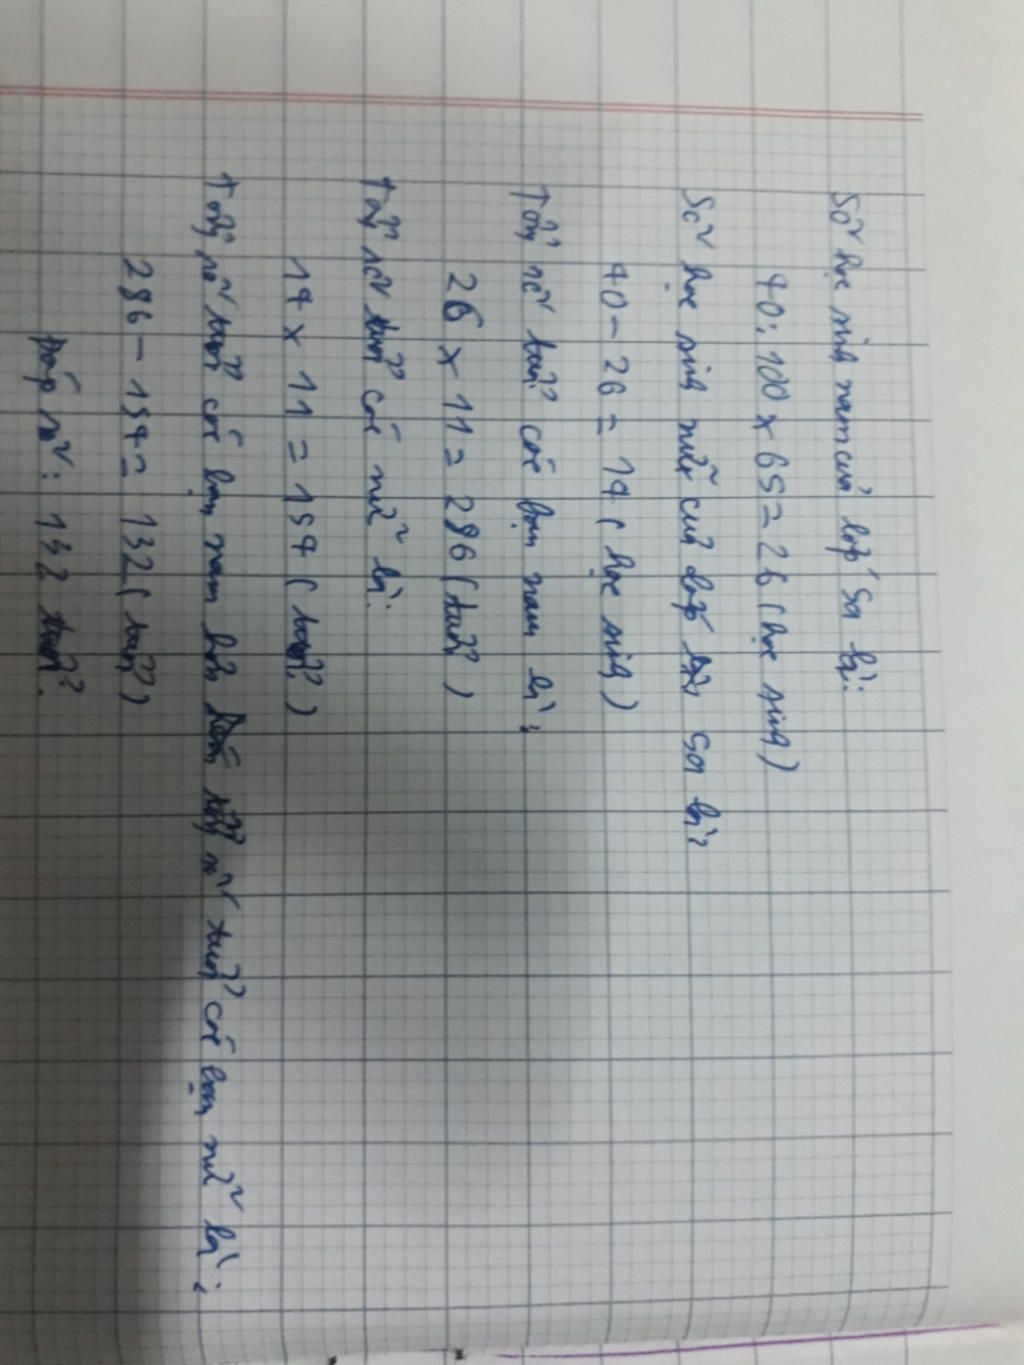 Số học sinh nam của lớp 5a là:
40 : 100 x 65 = 26 (học sinh)
Số học sinh nữ của lớp 5a là:
40 - 26 = 14 (học sinh)
Tổng số tuổi các bạn nam là:
26 x 11 = 286 (tuổi)
Tổng số tuổi các nữ là:
14 x 11 = 154 (tuổi)
Tổng số tuổi các bạn nam hơn tổng số tuổi các bạn nữ là:
286 - 154 = 132 (tuổi)
Đáp số: 132 tuổi.